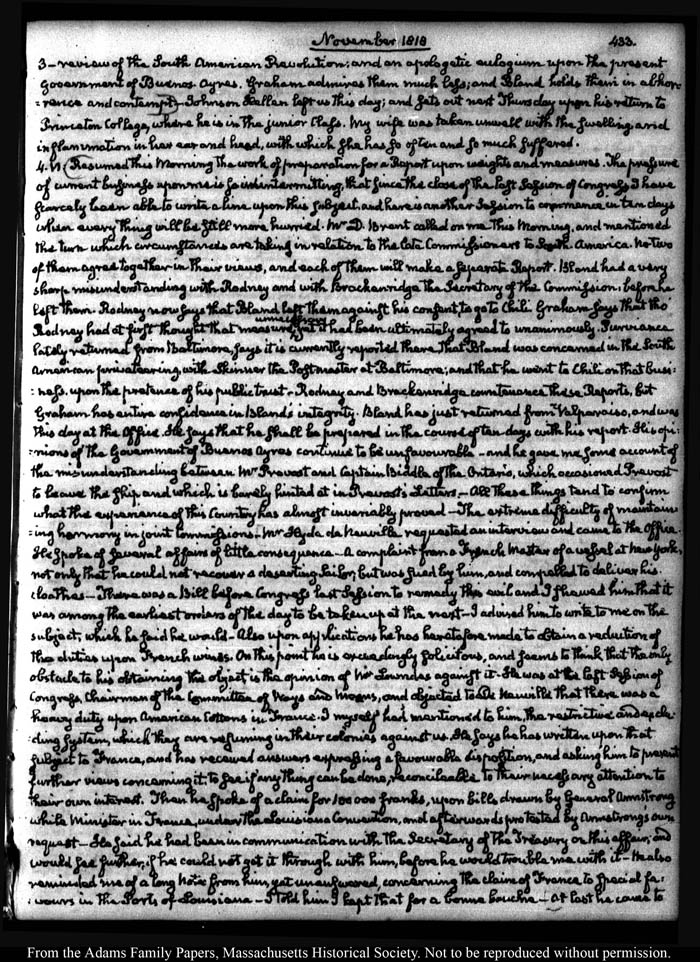 November 1818
433.
3 – review of the South American Revolution; and an apologetic eulogium upon the present
Government of Buenos Ayres. Graham admires them much less; and Bland holds them in abhor-
:rence and contempt – Johnson Hellen left us this day; and sets out next Thursday upon his return to
Princeton College, where he is in the junior Class. My wife was taken unwell with the swelling and
inflammation in her ear and head, with which she has so often and so much suffered.
4. VI. Resumed this Morning the work of preparation for a Report upon weights and measures. The pressure
of current business upon me is so unintermitting, that since the close of the last Session of Congress I have
scarcely been able to write a line upon this subject, and here is another Session to commence in ten days
when every thing will be still more hurried. Mr D. Brent called on me this Morning, and mentioned
the turn which circumstances are taking in relation to the late Commissioners to South America. No two
of them agree together in their views, and each of them will make a separate Report. Bland had a very
sharp misunderstanding with Rodney and with Brackenridge the Secretary of the Commission, before he
left them. Rodney now says that Bland left them against his consent, to go to Chili. Graham says that tho'
unnecessary
Rodney had at first thought that measure, yet it had been ultimately agreed to unanimously. Purviance
lately returned from Baltimore, says it is currently reported there that Bland was concerned in the South
American privateering with Skinner the Postmaster at Baltimore; and that he went to Chili on that busi-
:ness, upon the pretence of his public trust – Rodney and Brackenridge countenance these Reports, but
Graham has entire confidence in Bland's integrity. Bland has just returned from Valparaiso, and was
this day at the Office. He says that he shall be prepared in the course of ten days with his report. His opi-
:nions of the Government of Buenos Ayres continue to be unfavourable – and he gave me some account of
the misunderstanding between Mr Prevost and Captain Biddle of the Ontario, which occasioned Prevost
to leave the ship, and which is barely hinted at in Prevost's Letters. – All these things tend to confirm
what the experience of this Country has almost invariably proved – The extreme difficulty of maintain-
:ing harmony in joint Commissions. – Mr Hyde de Neuville requested an interview and came to the Office.
He spoke of several affairs of little consequence – A complaint from a French Master of a vessel at New York,
not only that he could not recover a deserting Sailor, but was sued by him, and compelled to deliver his
cloathes – There was a Bill before Congress last Session to remedy this evil and I shewed him that it
was among the earliest orders of the day to be taken up at the next – I advised him to write to me on the
subject, which he said he would – Also upon applications he has heretofore made to obtain a reduction of
the duties upon French wines. On this point he is exceedingly solicitous, and seems to think that the only
obstacle to his obtaining the object is the opinion of Mr Lowndes against it – He was at the last Session of
Congress, Chairman of the Committee of Ways and Means, and objected to De Neuville that there was a
heavy duty upon American Cottons in France. I myself had mentioned to him, the restrictive and exclu-
:ding System, which they are resuming in their colonies against us. He says he has written upon that
subject to France, and has received answers expressing a favourable disposition, and asking him to present
further views concerning it, to see if any thing can be done, reconcileable to their necessary attention to
their own interest. Then he spoke of a claim for 100 000 franks, upon bills drawn by General Armstrong
while Minister in France, under the Louisiana Convention, and afterwards protested by Armstrong's own
request – He said he had been in communication with the Secretary of the Treasury on this affair, and
would see further, if he could not get it through with him, before he would trouble me with it – He also
reminded me of a long Note from him, yet unanswered, concerning the claim of France, to special fa-
:vours in the Ports of Louisiana – I told him I kept that for a bonne bouche – At last he came to
From the Adams Family Papers, Massachusetts Historical Society. Not to be reproduced without permission.